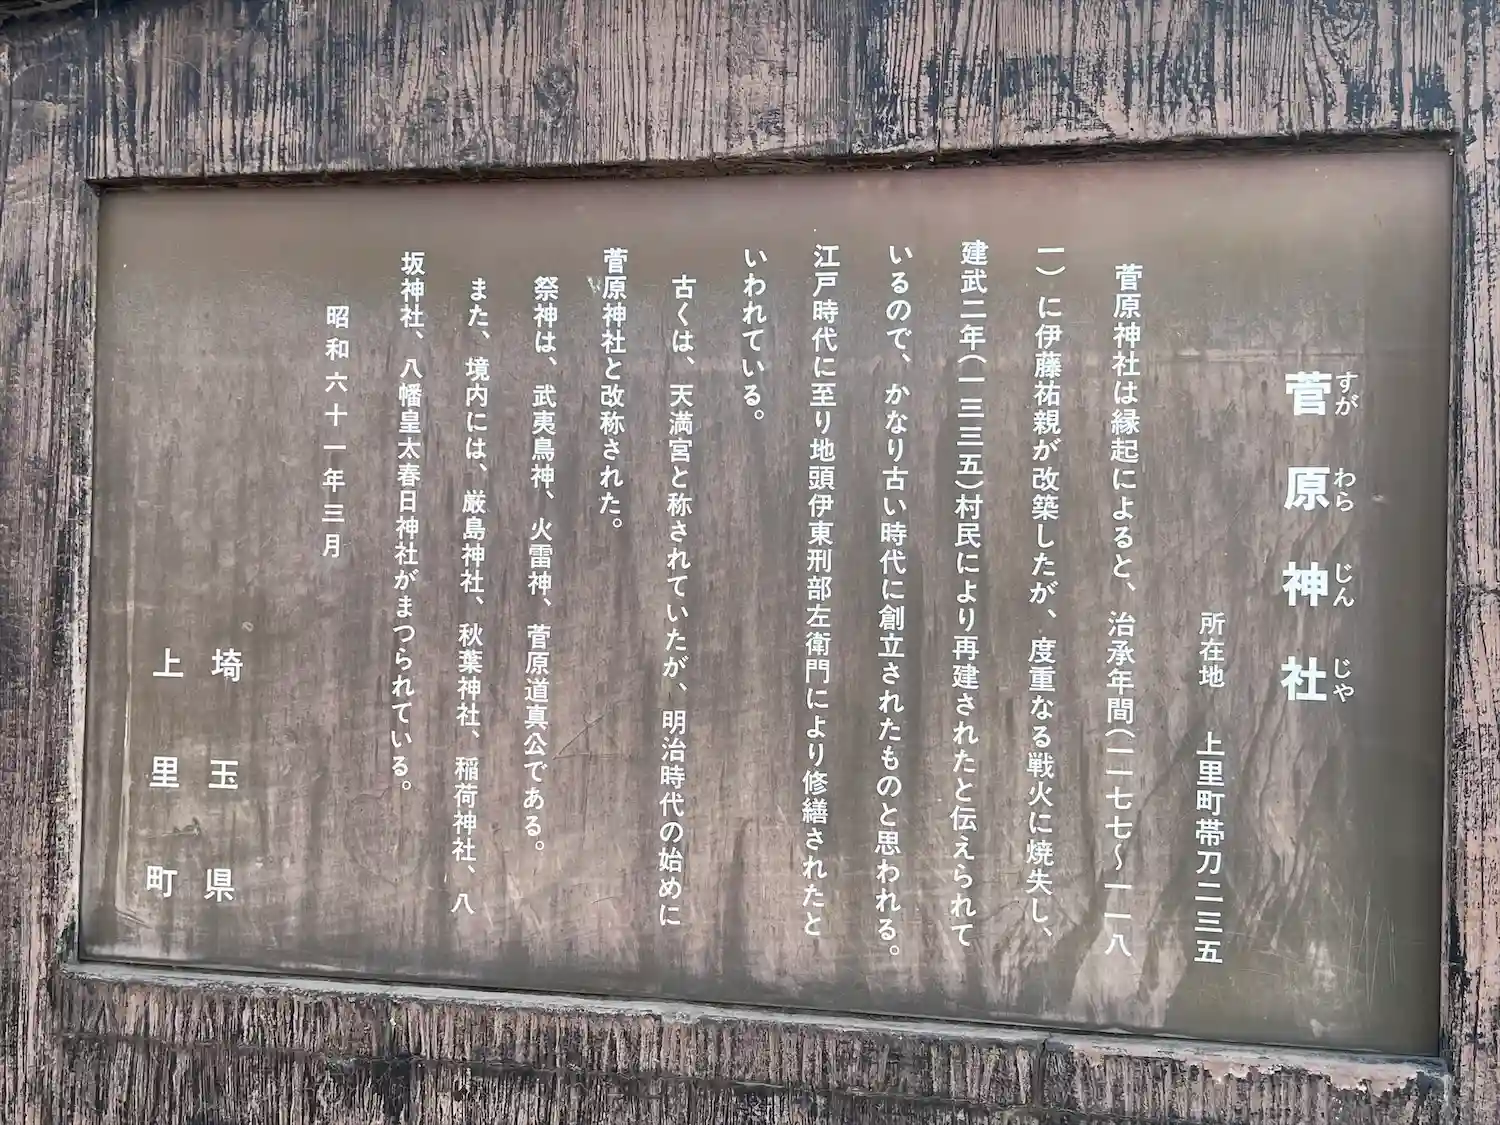 菅原神社
すがわらじんじゃ
所在地 上里町帯刀二三五
菅原神社は縁起によると、治承年間(一一七七〜一一八
一)に伊藤祐親が改築したが、度重なる戦火に焼失し、
建武二年(一三三五)村民により再建されたと伝えられて
いるので、かなり古い時代に創立されたものと思われる。
江戸時代に至り地頭伊東刑部左衛門により修繕されたと
いわれている。
古くは、天満宮と称されていたが、明治時代の始めに
菅原神社と改称された。
祭神は、武夷鳥神、火雷神、菅原道真公である。
また、境内には、厳島神社、秋葉神社、稲荷神社、八
坂神社、八幡皇太春日神社がまつられている。
昭和六十一年三月
埼玉県
上里町